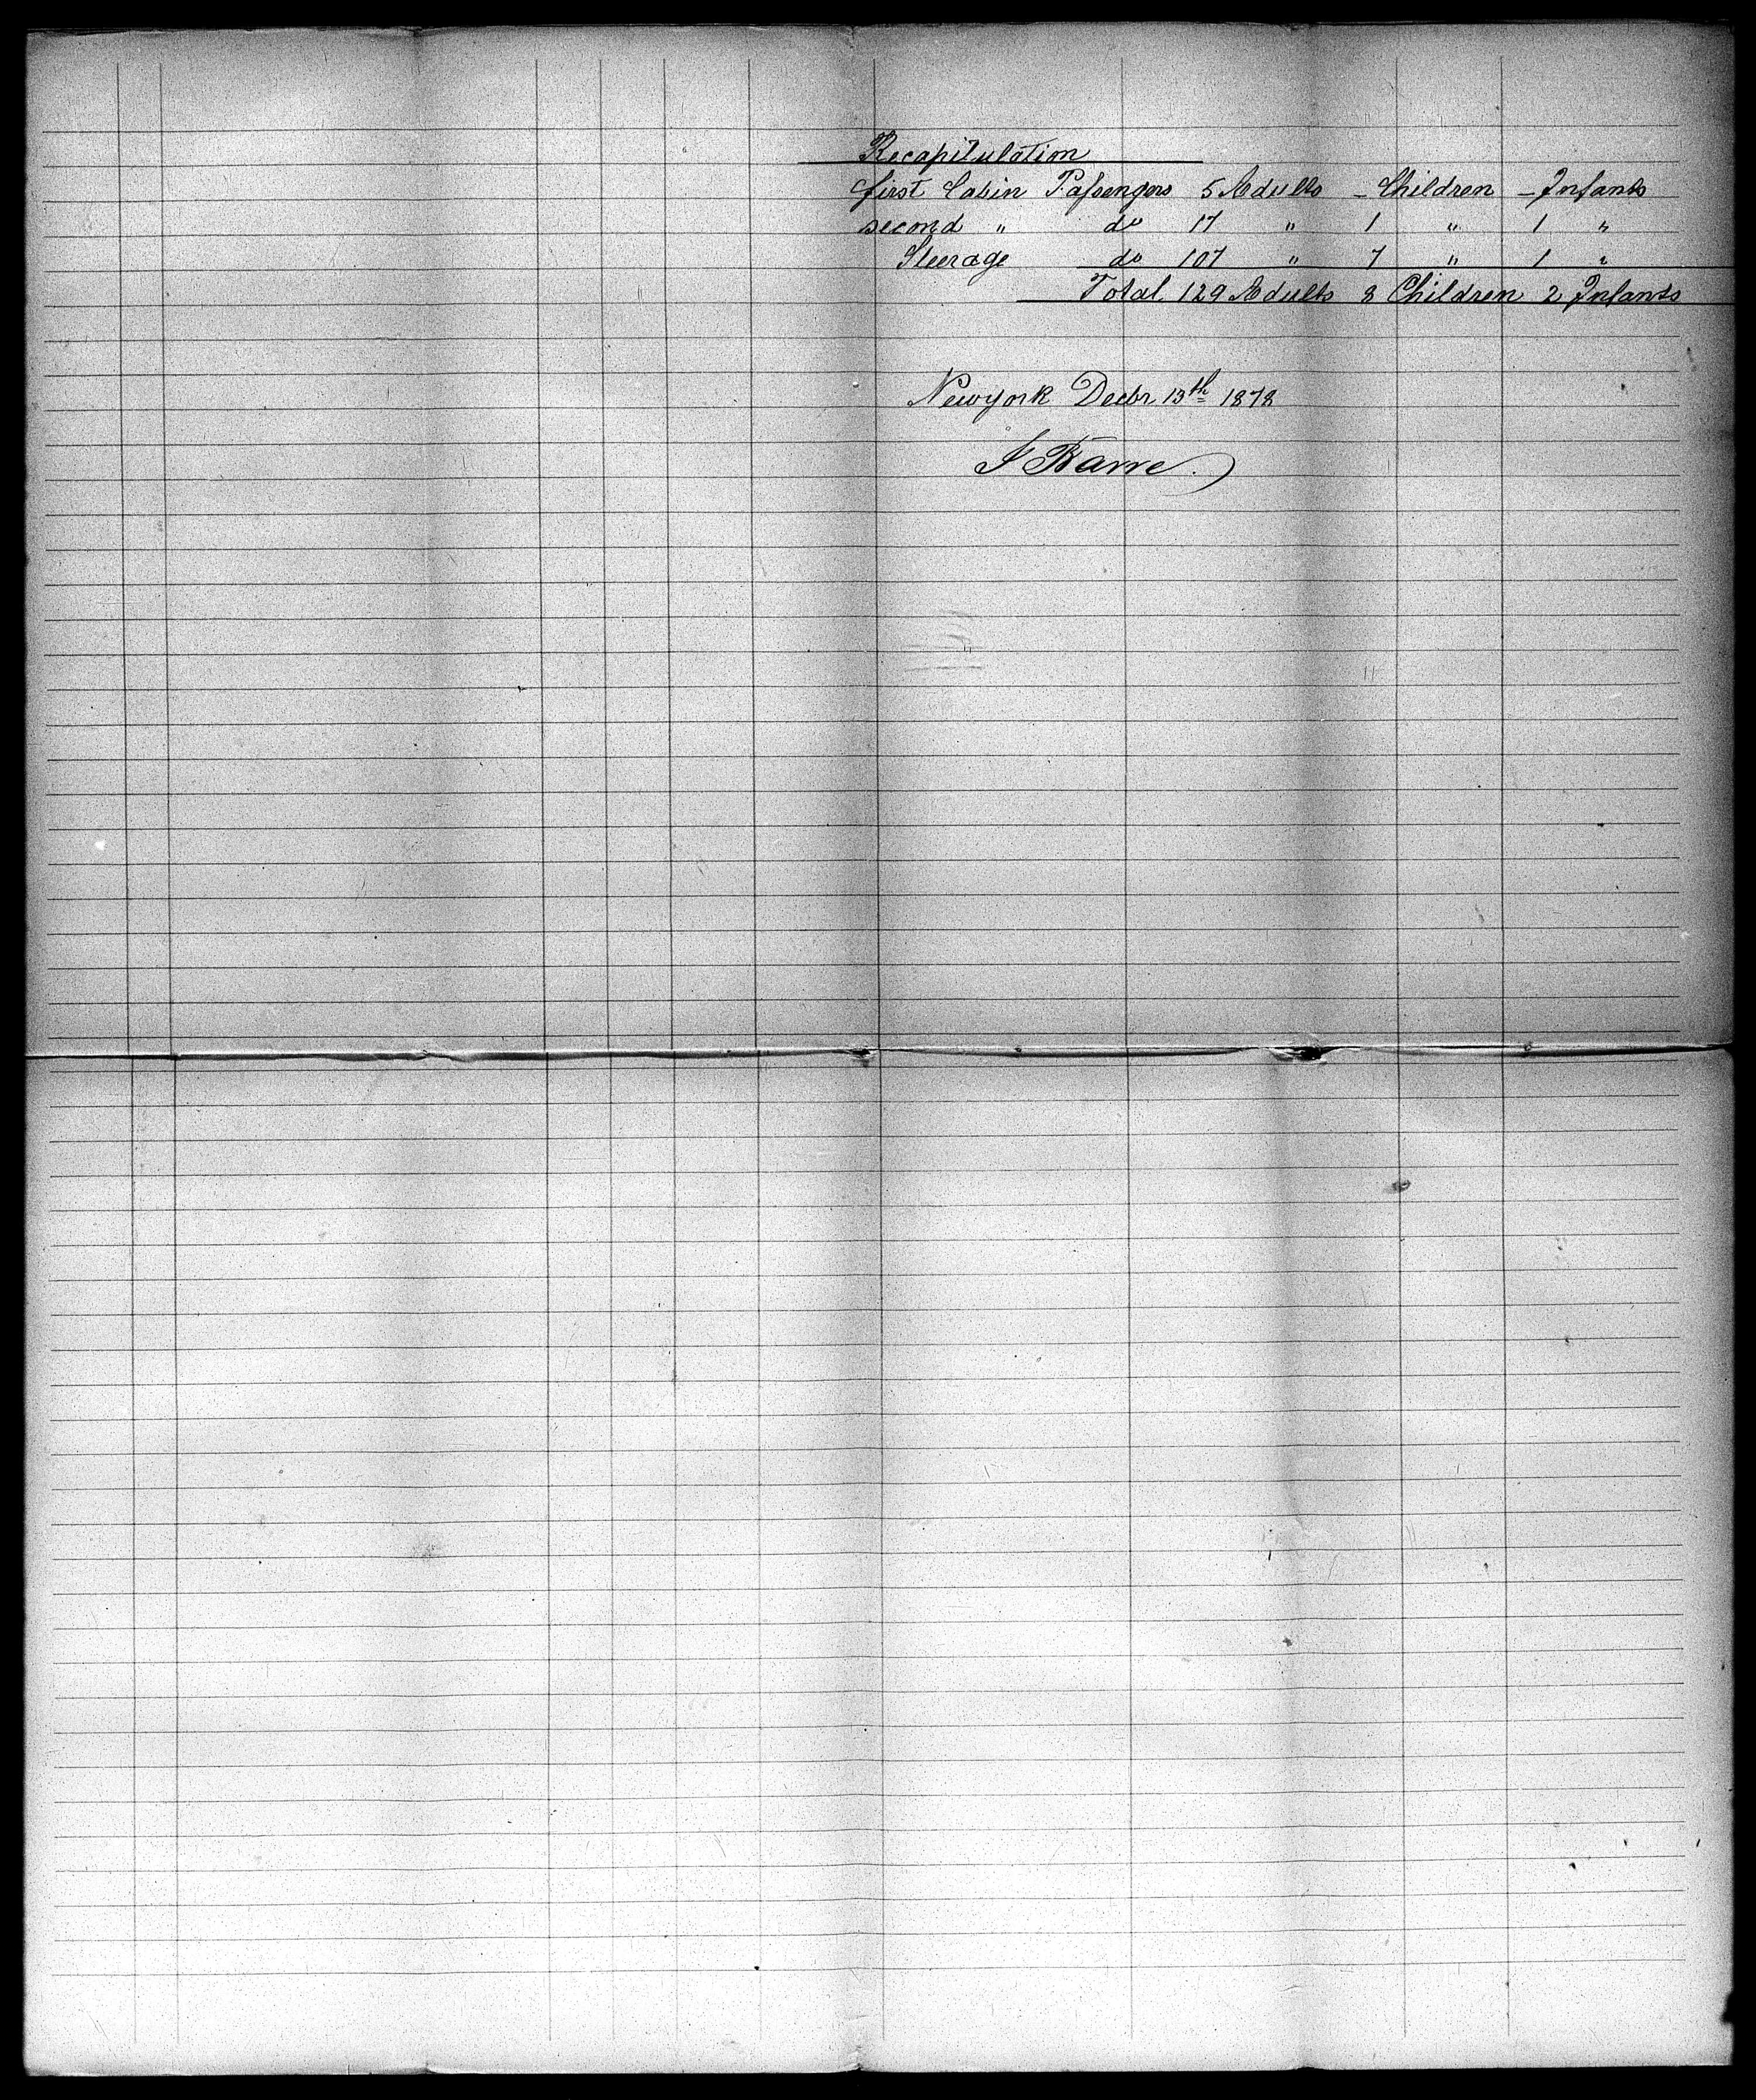 Recapitulation
first Cabin Passengers 5 Adults – Children – Infants
second " do 17 " 1 " 1 "
Steerage do 107 " 7 " 1 "
Total 129 Adults 8 Children 2 Infants
Newyork Decbr 13th 1878
J Barre